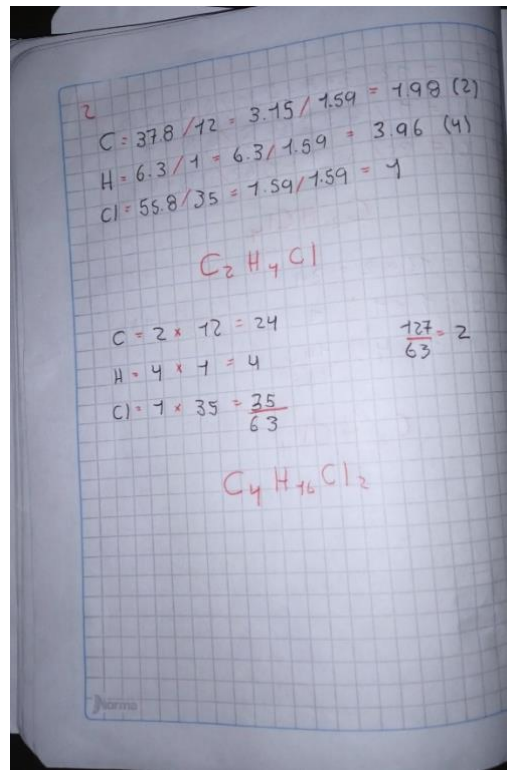 2
C = 37.8 / 12 = 3.15 / 1.59 = 1.98 (2)
H = 6.3 / 1 = 6.3 / 1.59 = 3.96 (4)
Cl = 55.8 / 35 = 1.59 / 1.59 = 1
C₂ H₄ Cl
C = 2 × 12 = 24
H = 4 × 1 = 4
Cl = 1 × 35 = 35
63
127/63 = 2
C₄ H₁₆ Cl₂
Norma